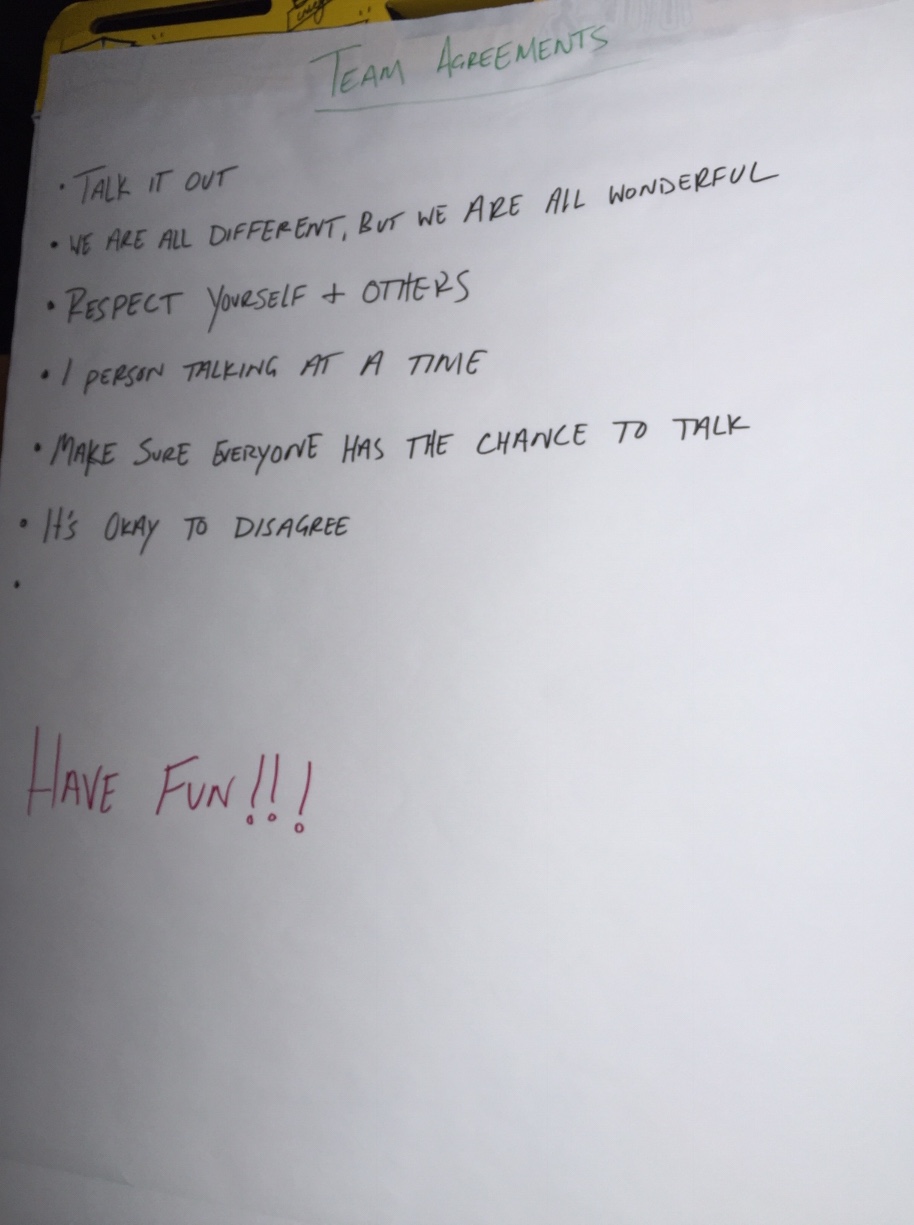 TEAM AGREEMENTS
• TALK IT OUT
• WE ARE ALL DIFFERENT, BUT WE ARE ALL WONDERFUL
• RESPECT YOURSELF + OTHERS
• 1 PERSON TALKING AT A TIME
• MAKE SURE EVERYONE HAS THE CHANCE TO TALK
• IT'S OKAY TO DISAGREE
•
HAVE FUN!!!